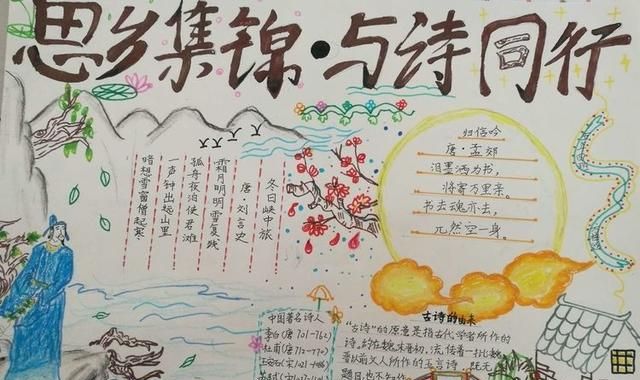 思乡集锦·与诗同行
冬日峡中旅
唐·刘言史
霜月明明雪复残
孤舟夜泊使君滩
一声钟出远山里
暗想雪窗僧起寒
归信吟
唐·孟郊
泪墨洒为书,
将寄万里亲。
书去魂亦去,
兀然空一身。
中国著名诗人
李白(唐701-762)
杜甫(唐712-770)
王安石(宋1021-1086
古诗的由来
"古诗"的原意是指古代学者所作的
诗,约在魏末晋初,流传着一批魏
晋以前文人所作的五言诗,既无
题目,也不知作